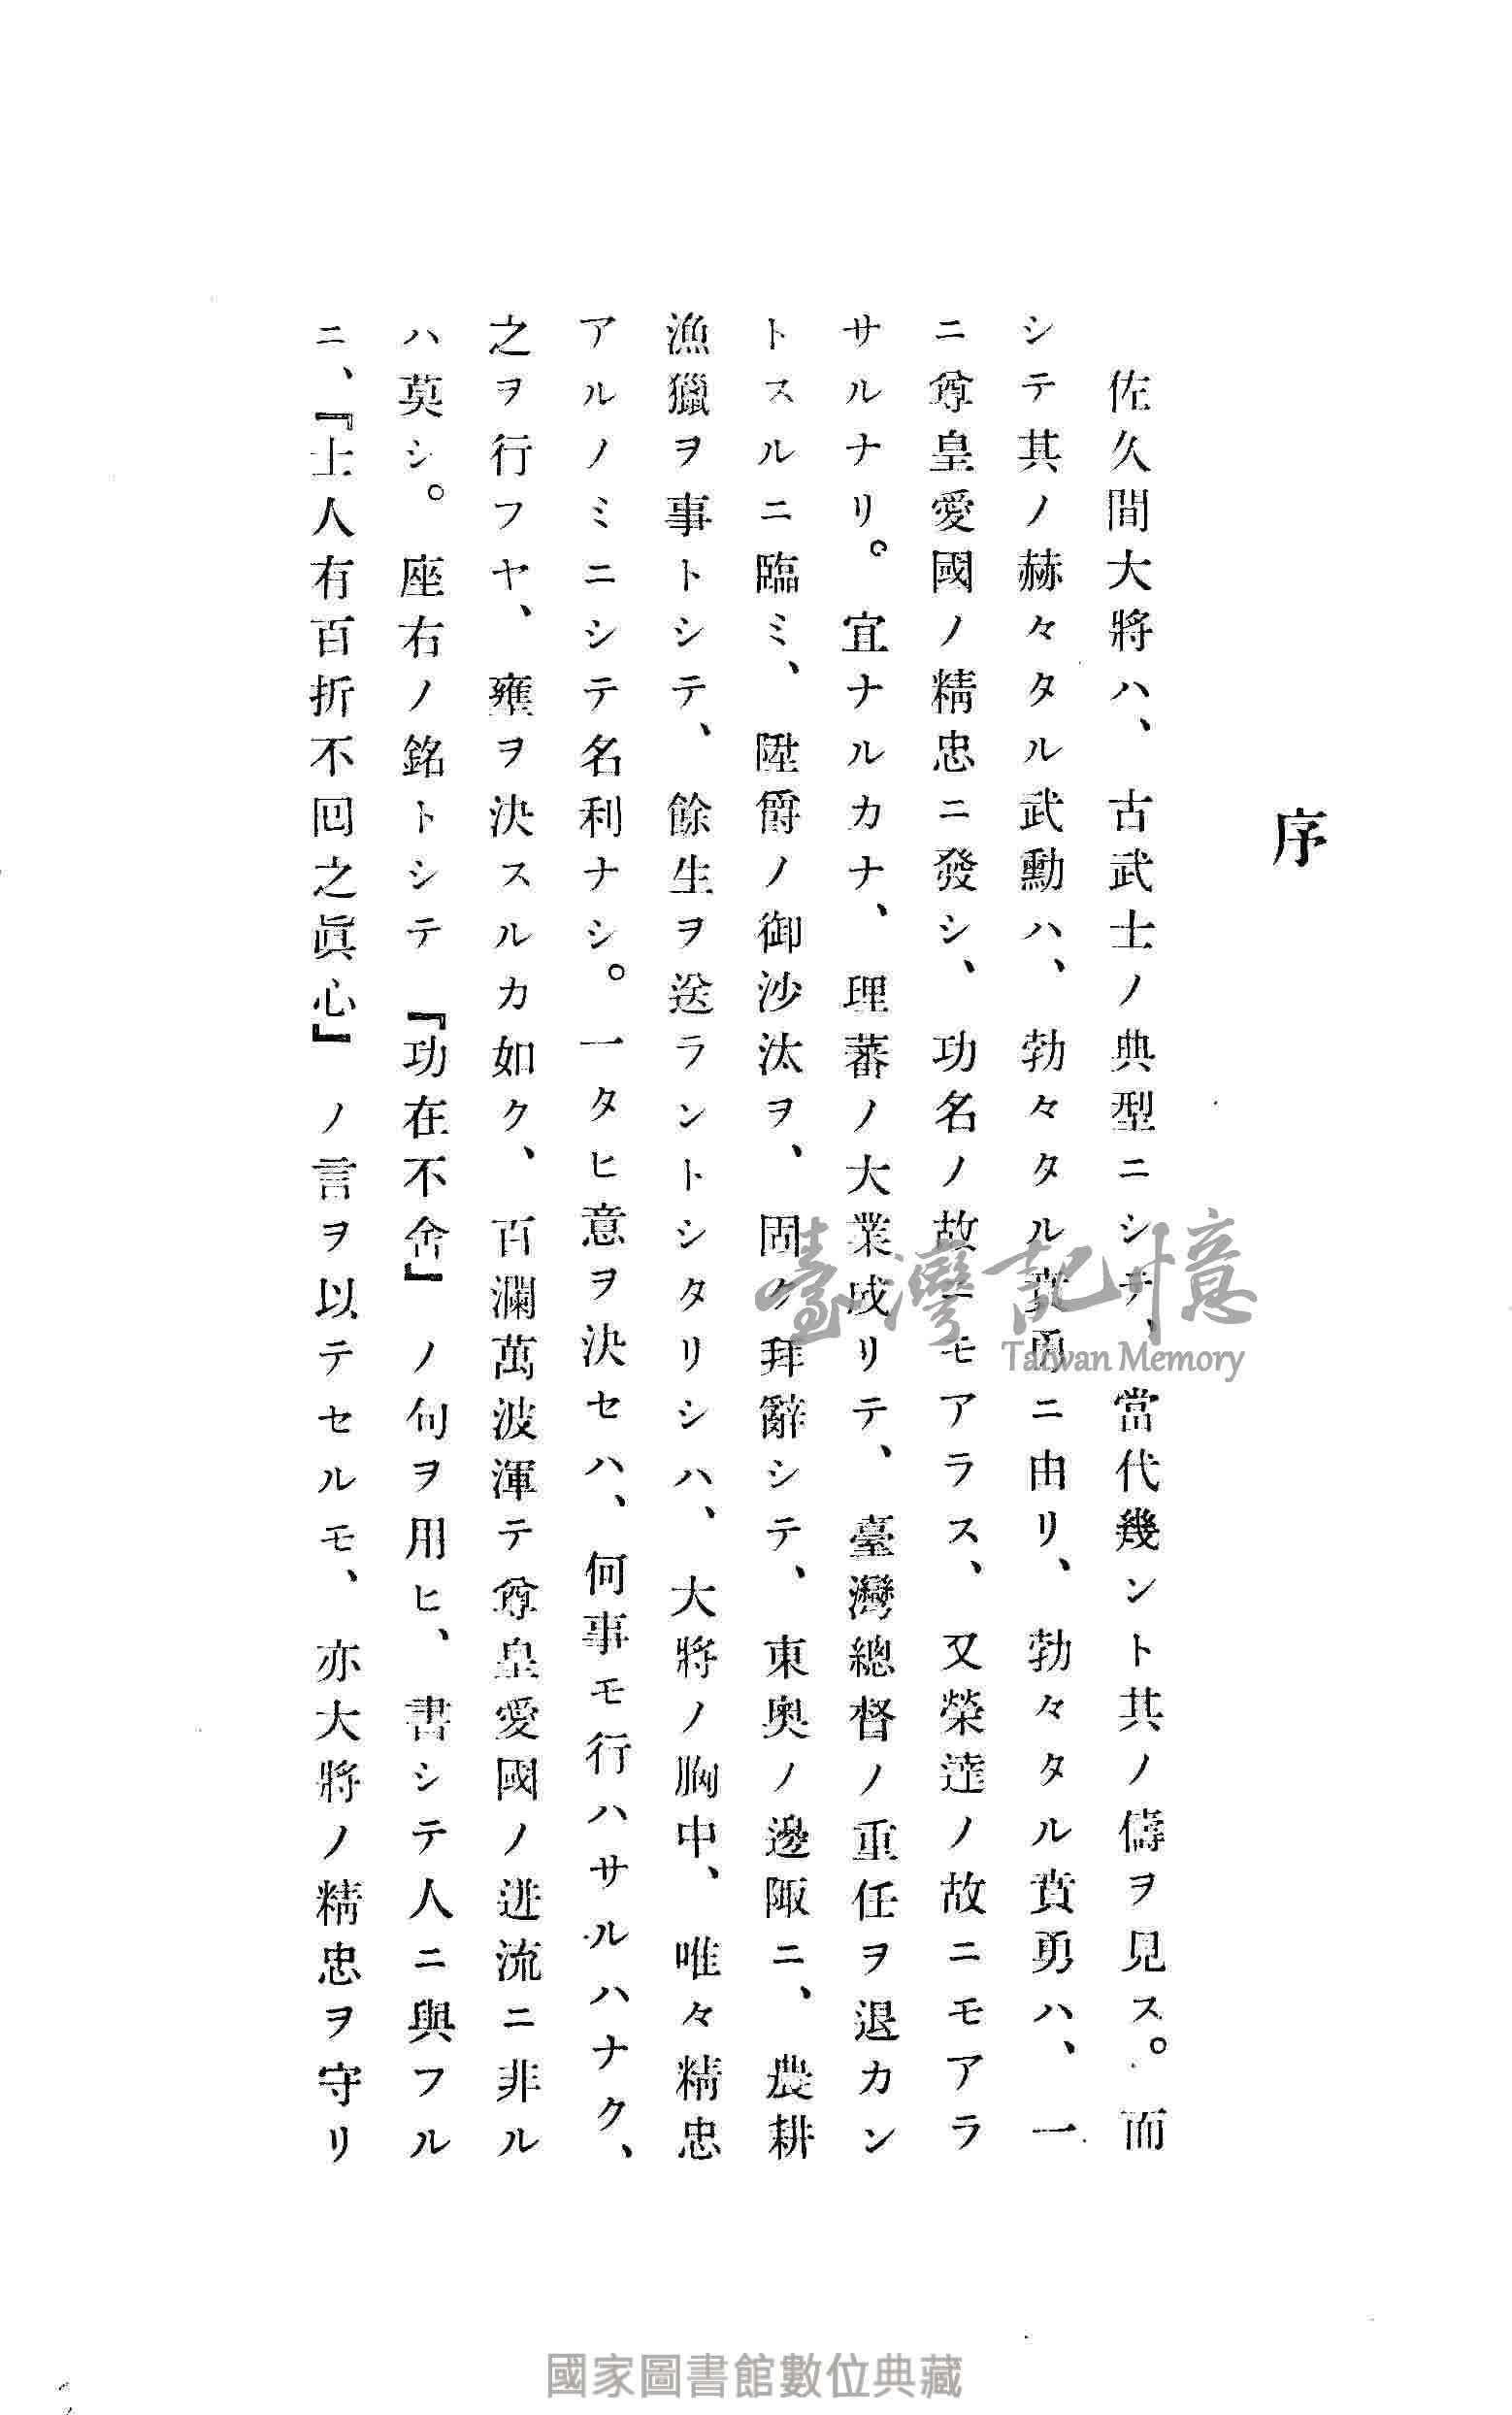 序
佐久間大將ハ、古武士ノ典型ニシテ、當代幾ント其ノ儔ヲ見ス。而
シテ其ノ赫々タル武勳ハ、勃々タル賁勇ニ由リ、勃々タル賁勇ハ、一
ニ尊皇愛國ノ精忠ニ發シ、功名ノ故ニモアラス、又榮達ノ故ニモアラ
サルナリ。宜ナルカナ、理蕃ノ大業成リテ、臺灣總督ノ重任ヲ退カン
トスルニ臨ミ、陞爵ノ御沙汰ヲ、固ク拜辭シテ、東奧ノ邊陬ニ、農耕
漁獵ヲ事トシテ、餘生ヲ送ラントシタリシハ、大將ノ胸中、唯々精忠
アルノミニシテ名利ナシ。一タヒ意ヲ決セハ、何事モ行ハサルハナク、
之ヲ行フヤ、壅ヲ決スルカ如ク、百瀾萬波渾テ尊皇愛國ノ迸流ニ非ル
ハ莫シ。座右ノ銘トシテ『功在不舍』ノ句ヲ用ヒ、書シテ人ニ與フル
ニ、『士人有百折不回之眞心』ノ言ヲ以テセルモ、亦大將ノ精忠ヲ守リ
臺灣記憶
Taiwan Memory
國家圖書館數位典藏